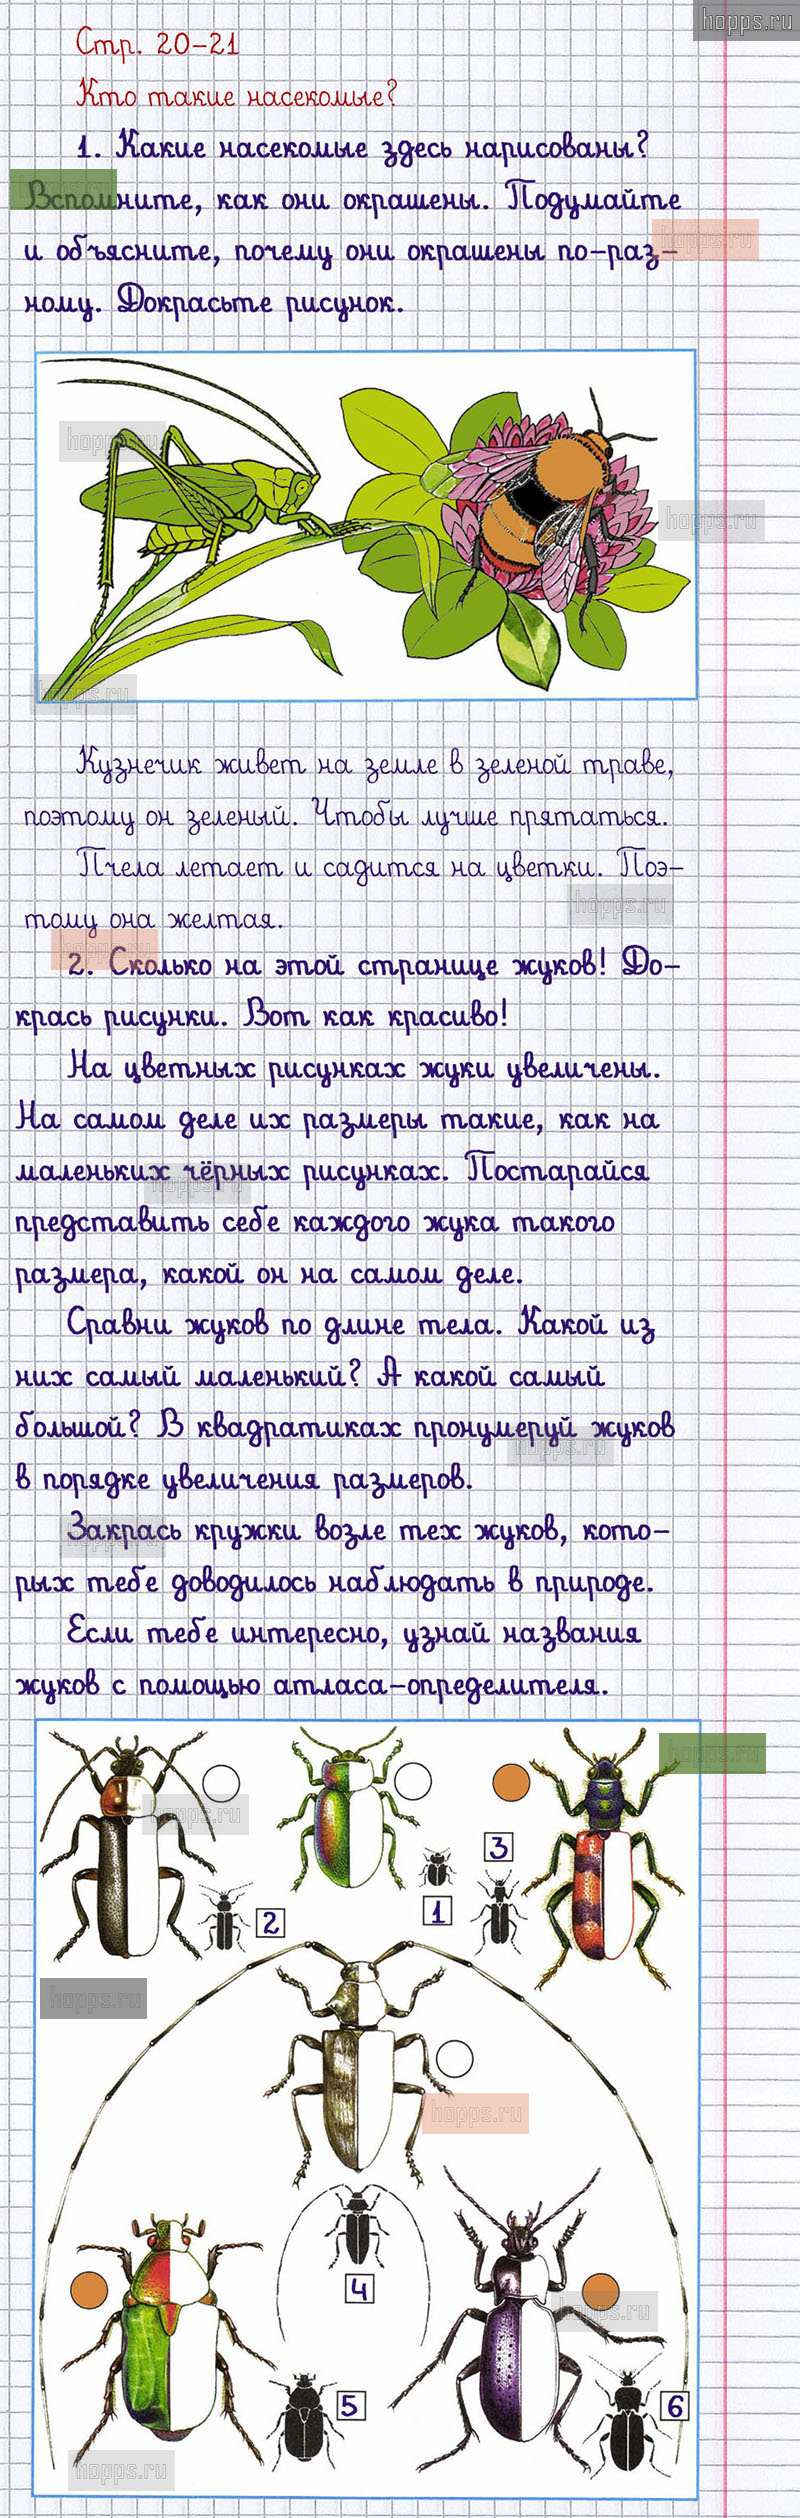 hopps.ru
Стр. 20-21
Кто такие насекомые?
1. Какие насекомые здесь нарисованы?
Вспомните, как они окрашены. Подумайте
и объясните, почему они окрашены по-раз-
ному. Докрасьте рисунок.
Кузнечик живет на земле в зеленой траве,
поэтому он зеленый. Чтобы лучше прятаться.
Пчела летает и садится на цветки. Поэ-
тому она желтая.
2. Сколько на этой странице жуков! До-
крась рисунки. Вот как красиво!
На цветных рисунках жуки увеличены.
На самом деле их размеры такие, как на
маленьких чёрных рисунках. Постарайся
представить себе каждого жука такого
размера, какой он на самом деле.
Сравни жуков по длине тела. Какой из
них самый маленький? А какой самый
большой? В квадратиках пронумеруй жуков
в порядке увеличения размеров.
Закрась кружки возле тех жуков, кото-
рых тебе доводилось наблюдать в природе.
Если тебе интересно, узнай названия
жуков с помощью атласа-определителя.
3
2
1
4
5
6